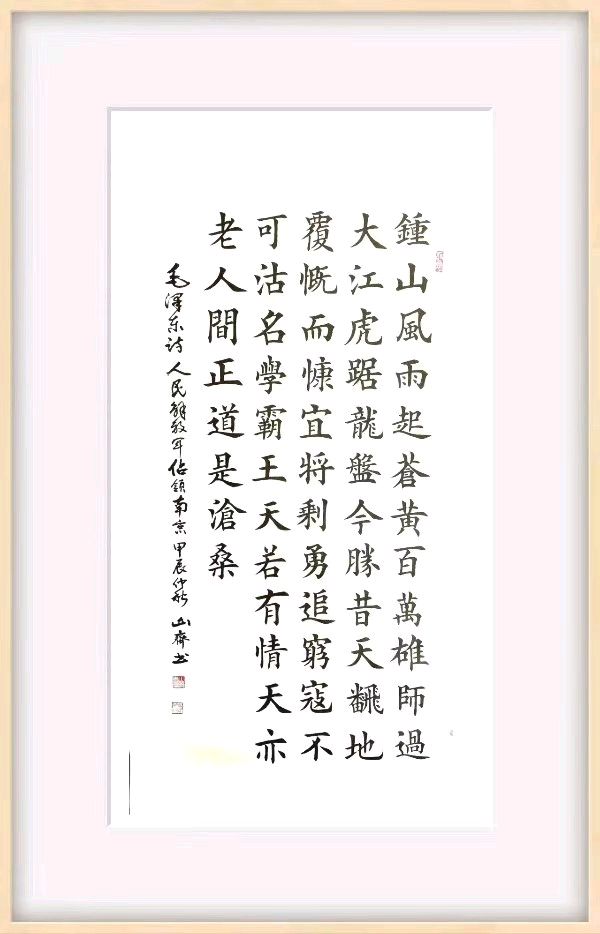 鍾山風雨起蒼黃百萬雄師過
大江虎踞龍盤今勝昔天飜地
覆慨而慷宜將剩勇追窮寇不
可沽名學霸王天若有情天亦
老人間正道是滄桑
毛澤东诗人民解放军佔領南京甲辰仲秋山齊书